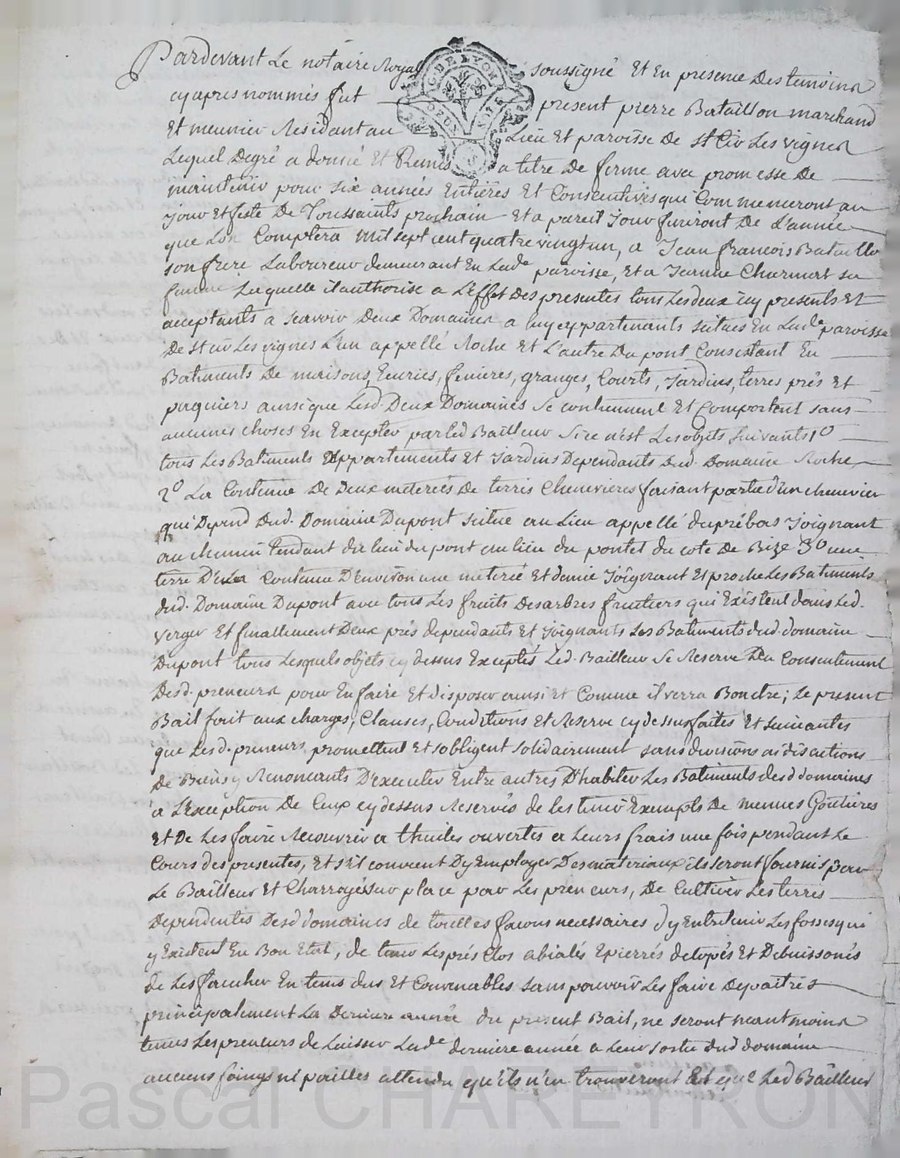 Pardevant Le notaire Royal soussigné Et En presence Des temoins
cy apres nommés fut present pierre Bataillon marchand
Et meunier Residant au Lieu Et paroisse de st Cir Les vignes
Lequel Degré a donné Et Remis a titre de ferme avec promesse de
maintenir pour six années Entières Et Consecutives qui Commenceront au
jour Et feste De Toussaints prochain Et a pareil Jour finiront De L'année
que Lon Comptera mil sept cent quatre vingt un, a Jean françois Bataillon
son frere Laboureur demeurant En Lade paroisse, Et a Jeanne Charmart sa
femme Laquelle il authorise a L'effet Des presentes tous Les deux icy presents Et
acceptants a scavoir Deux Domaines a luy appartenants scitues En Lade paroisse
De st Cir Les vignes L'un appellé Roche Et L'autre Du pont Consistant En
Batiments De maisons, Ecuries, fenieres, granges, Courts, Jardins, terres prés Et
paquiers ainsi que Lesd. Deux Domaines Se contiennent Et Comportent sans
aucunes choses En Excepter par led Bailleur Si ce n'est Les objets suivants 1o
tous Les Batiments appartements Et Jardins Dependants Dud. Domaine Roche
2o La Contenue De Deux meterées De terres Chenevieres faisant partie d'un chenevier
qui Depend Dud. Domaine Dupont scitue au Lieu appellé du pré bas Joignant
au chemin tendant du lieu du pont au lieu du pontet du cote de Bize 3o une
terre De La Contenue D'Environ une meterée Et demie Joignant Et proche Les Batiments
dud. Domaine Dupont avec tous Les fruits Des arbres fruitiers qui Existent dans Led.
verger Et finallement Deux prés dependants Et Joignants Les Batiments dud. domaine
Dupont tous Lesquels objets cy dessus Exceptés Led. Bailleur Se Reserve Du Consentement
Desd. preneurs pour En faire Et disposer ainsi Et Comme il verra Bon Etre; Le present
Bail fait aux charges, Clauses, Conditions Et Reserve cy dessus faites Et suivantes
que Les d. preneurs promettent Et sobligent solidairement sans divisions ni discutions
De Biens y Renoncants D'executer Entre autres D'habiter Les Batiments desd domaines
à L'Exception De Ceux cy dessus Reservés de les tenir Exempts De menues Goutieres
Et De Les faire Recouvrir a thuiles ouvertes a Leurs frais une fois pendant Le
Cours des presentes, Et s'il convient Dy Employer Des materiaux ils seront fournis par
Le Bailleur Et Charroyés sur place par Les preneurs, De Cultiver Les terres
Dependentes Desd domaines de touttes facons necessaires dy Entretenir Les fosses qui
y Existent En Bon Etat, de tenir Les prés Clos abialés Epierrés detopés Et Debuissonés
de Les faucher En tems dus Et Convenables sans pouvoir Les faire Depaître
principalement La Derniere année du present Bail, ne seront neantmoins
tenus Les preneurs de Laisser Lade derniere année a Leur sortie dud domaine
aucuns foings ni pailles attendu qu'ils n'en trouveront Et que Led Bailleur
Pascal CHAREYRON